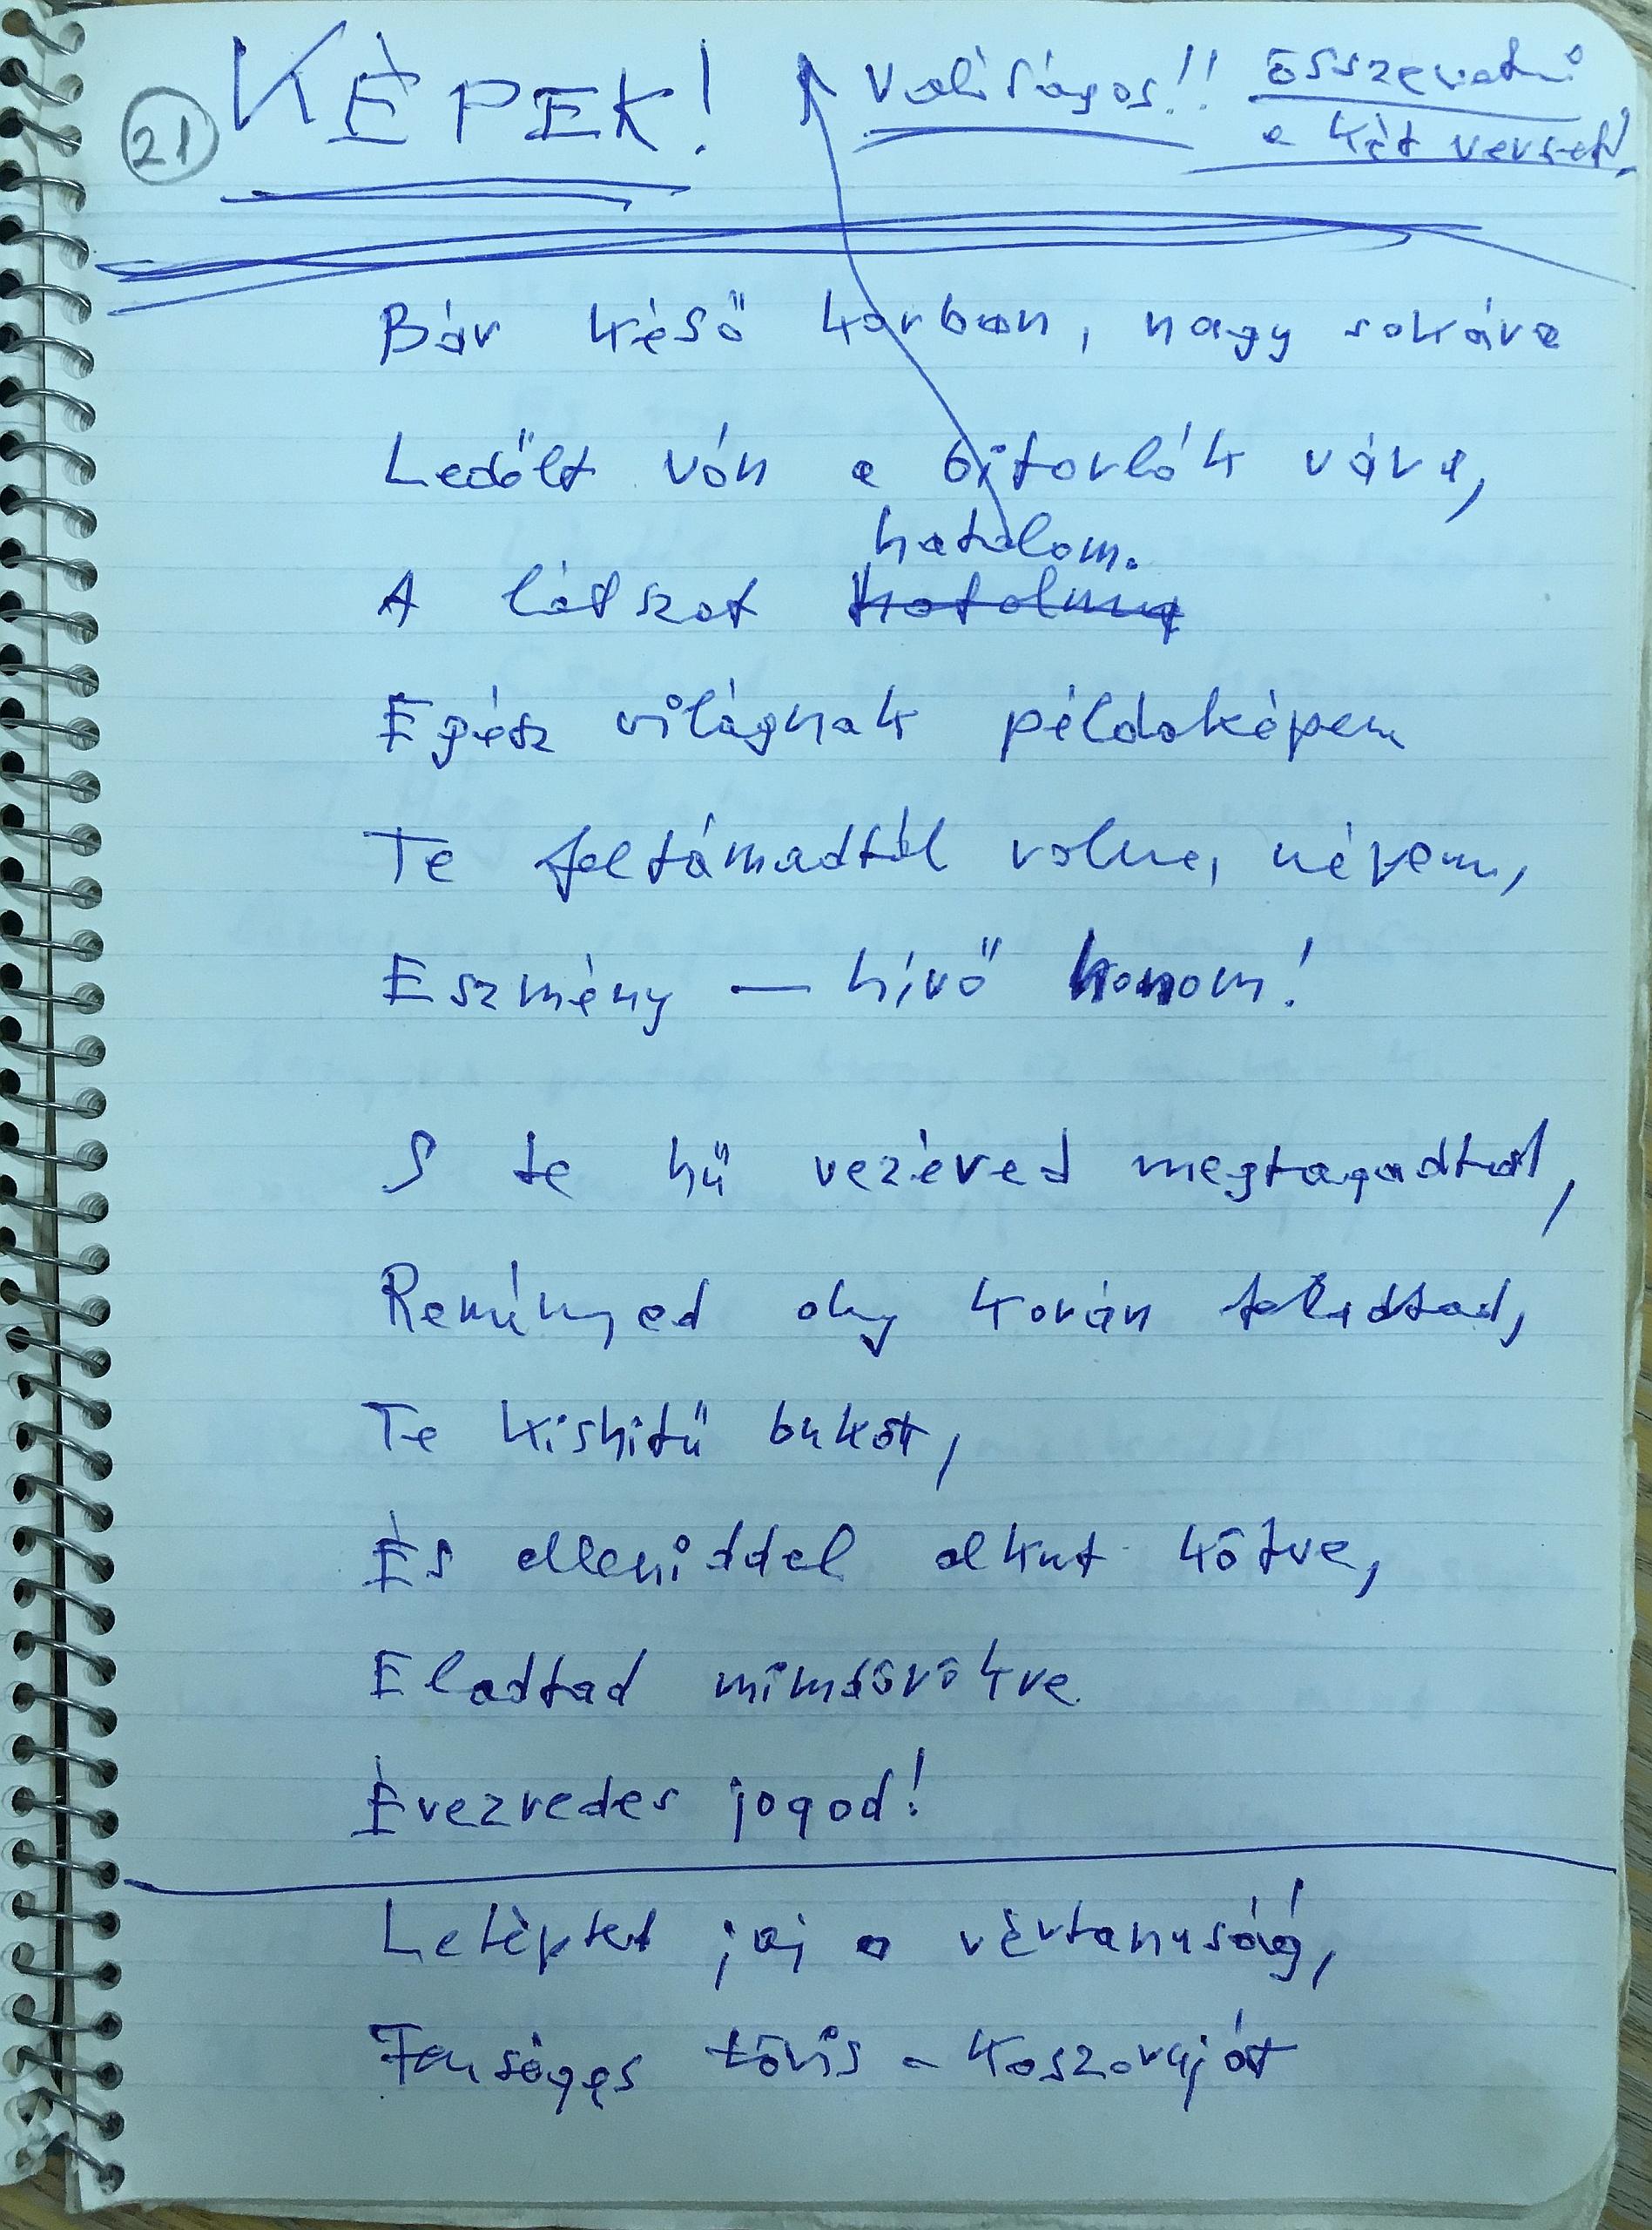 21 KÉPEK! Valóságos!! összevetni
a két verset!
Bár késő korban, nagy sokára
Ledőlt vón a bitorlók vára,
hatalom.
A látszat hatalma
Egész világnak példaképem
Te feltámadtál volna, népem,
Eszmény — hívő honom!
S te hű vezéred megtagadtad,
Reményed oly korán feladtad,
Te kishitű bukott,
És elleniddel alkut kötve,
Eladtad mindörökre
Évezredes jogod!
Letépted jaj a vértanuság,
Fenséges tövis-koszoruját